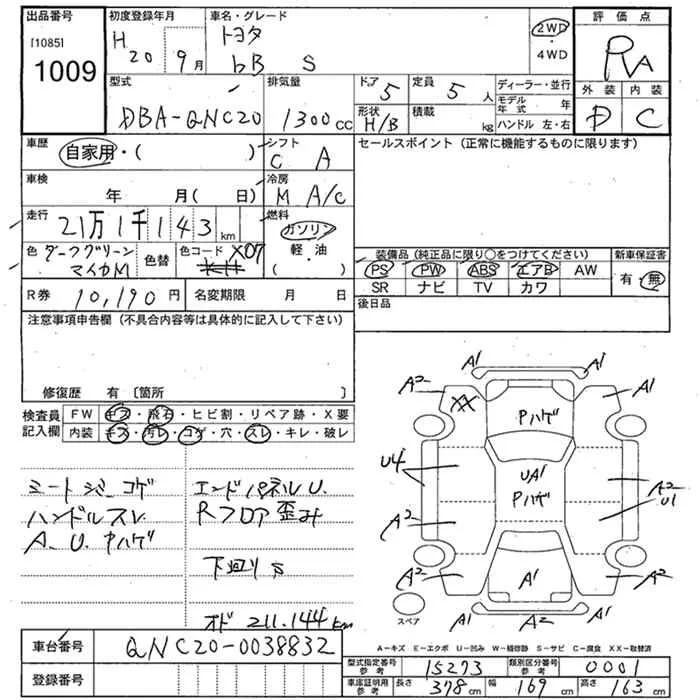 出品番号 初度登録年月 車名・グレード 評価点
[1085] 1009 H20 9月 トヨタ bB S 2WD・4WD RA
型式 排気量 ドア 5 定員 5人 ディーラー・並行 外装 内装
DBA-QNC20 1300cc 形状 H/B 積載 kg モデル年式 年 D C
ハンドル 左・右
車歴 自家用・( ) シフト C A セールスポイント (正常に機能するものに限ります)
車検 年 月( 日) 冷房 M A/C
走行 21万1千143km 燃料 ガソリン・軽・油 ( )
色 ダークグリーンマイカM 色替 色コード X07 装備品 (純正品に限り○をつけてください) 新車保証書
PS PW ABS エアB AW 有・無
SR ナビ TV カワ
R券 10,190円 名変期限 月 日 後日品
注意事項申告欄 (不具合内容等は具体的に記入して下さい)
修復歴 有 〔箇所 〕
検査員記入欄 FW キズ・飛石・ヒビ割・リペア跡・X要
内装 キズ・汚レ・コゲ・穴・スレ・キレ・破レ
シートシミ コゲ エンドパネルU.
ハンドルスレ Rフロア歪み
A. U. Pハゲ
下廻りS
オド 211.144km
A1 A1
A2 A1
XX Pハゲ
U4 UA1 A2
Pハゲ U1
A2
A2 A1 A2
A1 A2 A1
スペア
A-キズ E-エクボ U-凹み W-補修跡 S-サビ C-腐食 XX-取替済
車台番号 QNC20-0038832
登録番号
型式指定番号 参考 15273 類別区分番号 参考 0001
車庫証明用 参考 長さ 378cm 幅 169cm 高さ 163cm